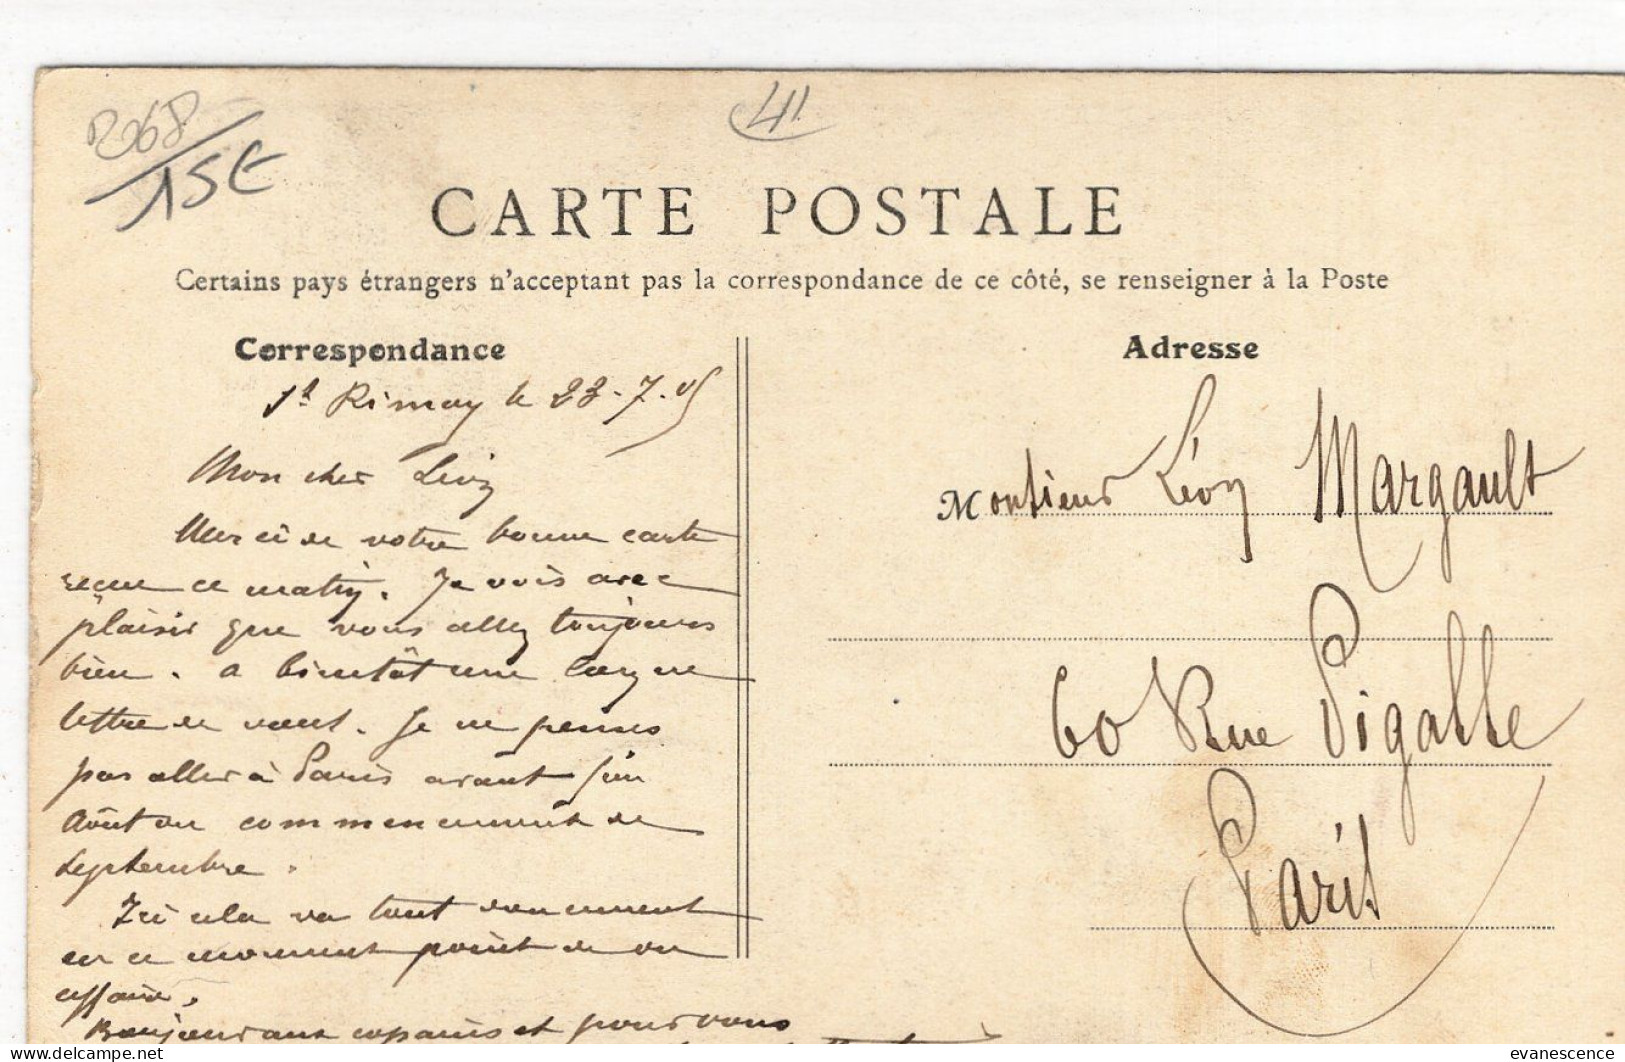 R268
15€
41
CARTE POSTALE
Certains pays étrangers n'acceptant pas la correspondance de ce côté, se renseigner à la Poste
Correspondance
Adresse
St Rimay le 23.7.05
Mon cher Léon
Merci de votre bonne carte
reçue ce matin. Je vois avec
plaisir que vous allez toujours
bien. a bientôt une longue
lettre de vous. Je ne pense
pas aller à Paris avant fin
Août ou commencement de
Septembre.
Ici cela va tout doucement
en ce moment point de
affaire.
Bonjour aux copains et pour vous
Monsieur Léon Margault
60 Rue Pigalle
Paris
evanescence
delcampe.net